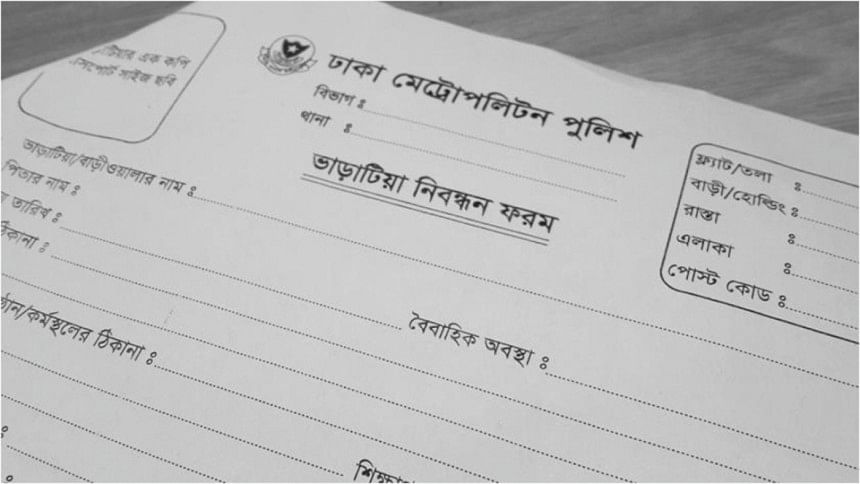 এক কপি
সাইজ ছবি
ঢাকা মেট্রোপলিটন পুলিশ
বিভাগ ঃ
থানা ঃ
ভাড়াটিয়া নিবন্ধন ফরম
ফ্ল্যাট/তলা ঃ
বাড়ী/হোল্ডিং ঃ
রাস্তা ঃ
এলাকা ঃ
পোস্ট কোড ঃ
ভাড়াটিয়া/বাড়ীওয়ালার নাম ঃ
পিতার নাম ঃ
তারিখ ঃ
বৈবাহিক অবস্থা ঃ
ঠিকানা ঃ
/কর্মস্থলের ঠিকানা ঃ